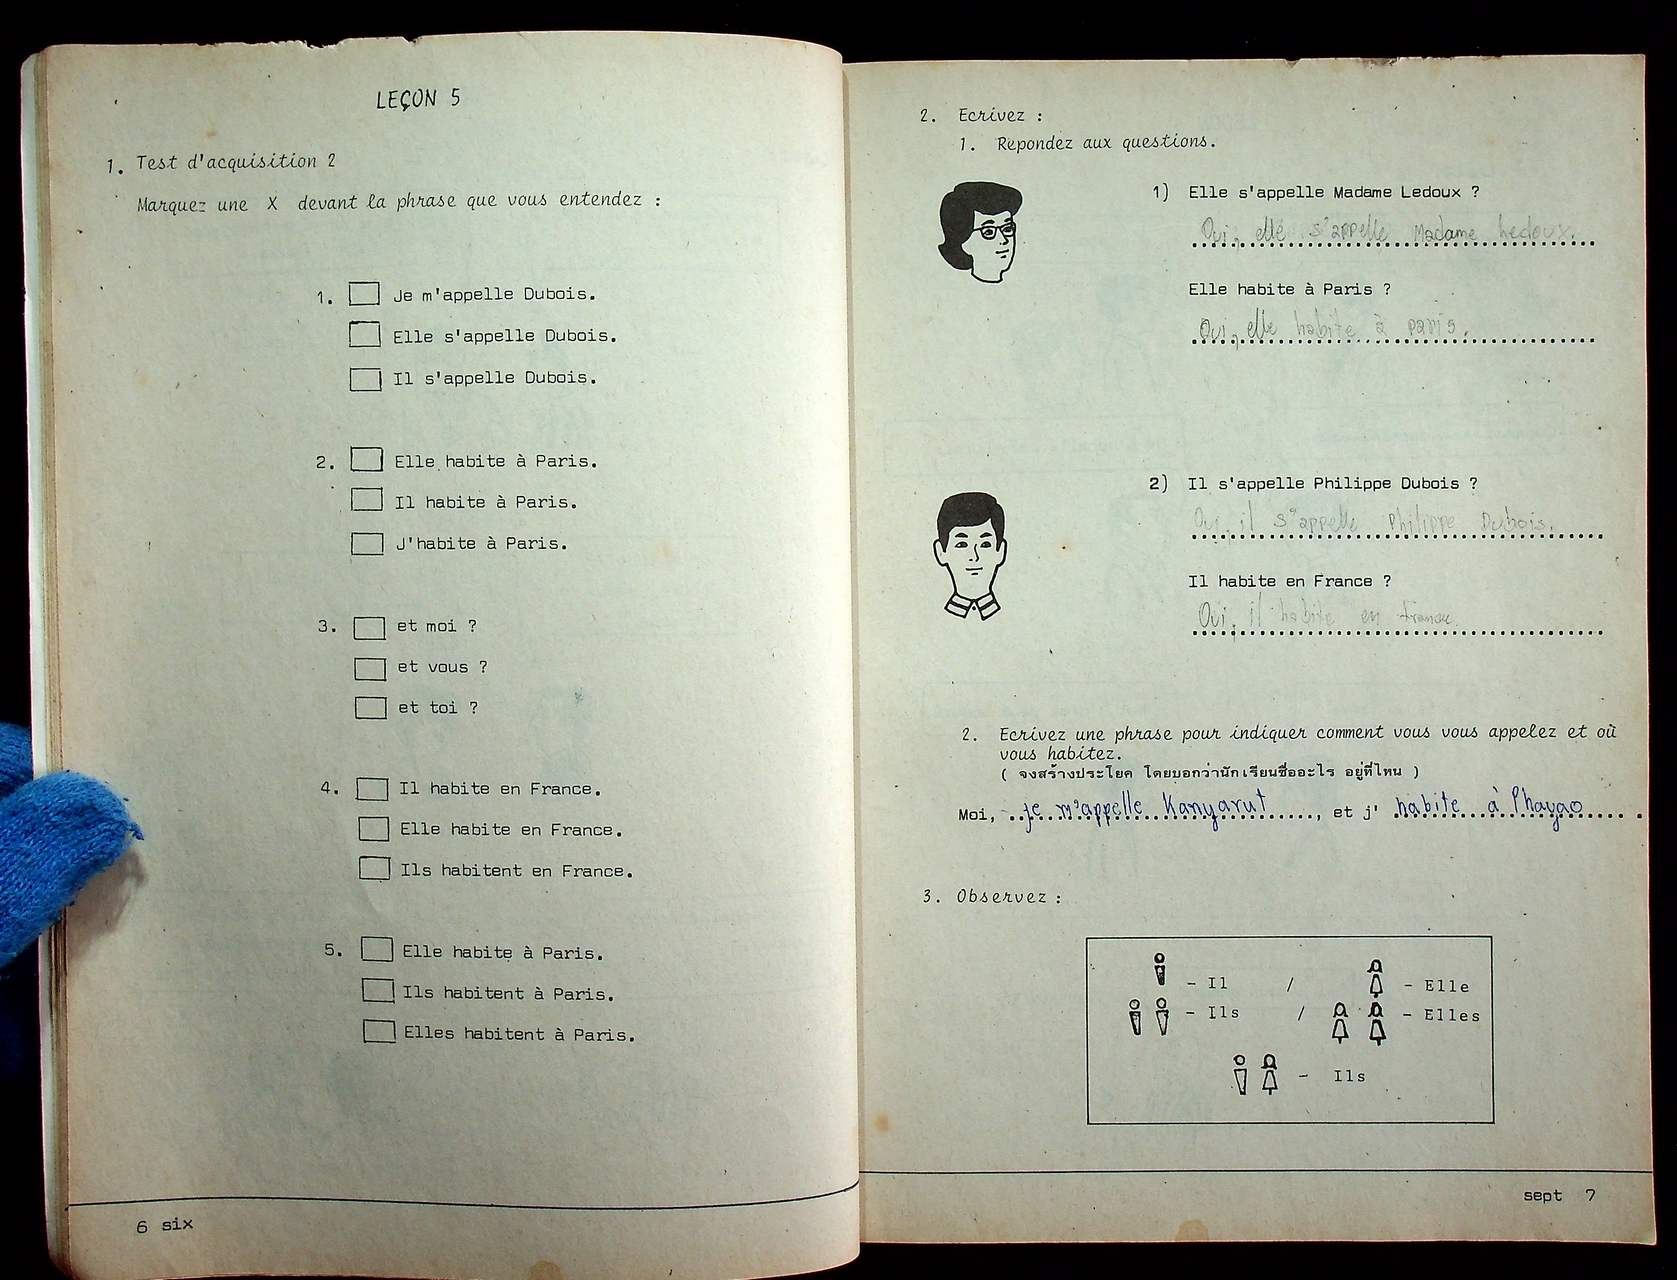 LEÇON 5
1. Test d'acquisition 2
Marquez une X devant la phrase que vous entendez :
1. Je m'appelle Dubois.
Elle s'appelle Dubois.
Il s'appelle Dubois.
2. Elle habite à Paris.
Il habite à Paris.
J'habite à Paris.
3. et moi ?
et vous ?
et toi ?
4. Il habite en France.
Elle habite en France.
Ils habitent en France.
5. Elle habite à Paris.
Ils habitent à Paris.
Elles habitent à Paris.
6 six
2. Ecrivez :
1. Répondez aux questions.
1) Elle s'appelle Madame Ledoux ?
Oui, elle s'appelle Madame Ledoux.
Elle habite à Paris ?
Oui, elle habite à paris.
2) Il s'appelle Philippe Dubois ?
Oui, il s'appelle Philippe Dubois.
Il habite en France ?
Oui, il habite en france.
2. Ecrivez une phrase pour indiquer comment vous vous appelez et où
vous habitez.
( จงสร้างประโยค โดยบอกว่านักเรียนชื่ออะไร อยู่ที่ไหน )
Moi, je m'appelle Kanyarut, et j' habite à Phayao
3. Observez :
- Il / - Elle
- Ils / - Elles
- Ils
sept 7